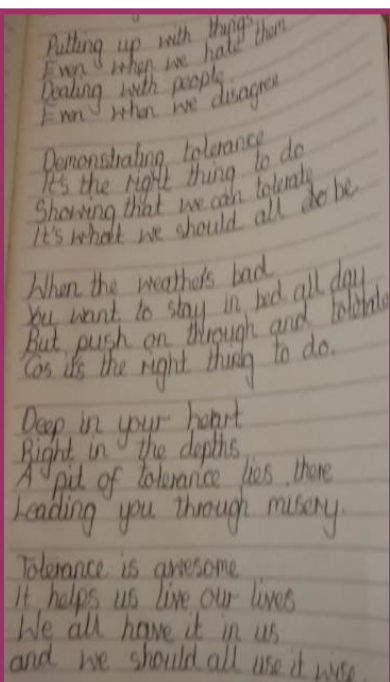 Putting up with things
Even when we hate them
Dealing with people
Even when we disagree
Demonstrating tolerance
It's the right thing to do
Showing that we can tolerate
It's what we should all do be
When the weather's bad
You want to stay in bed all day
But push on through and tolerate
Cos it's the right thing to do.
Deep in your heart
Right in the depths
A pit of tolerance lies there
Leading you through misery.
Tolerance is awesome
It helps us live our lives
We all have it in us
and we should all use it wise.